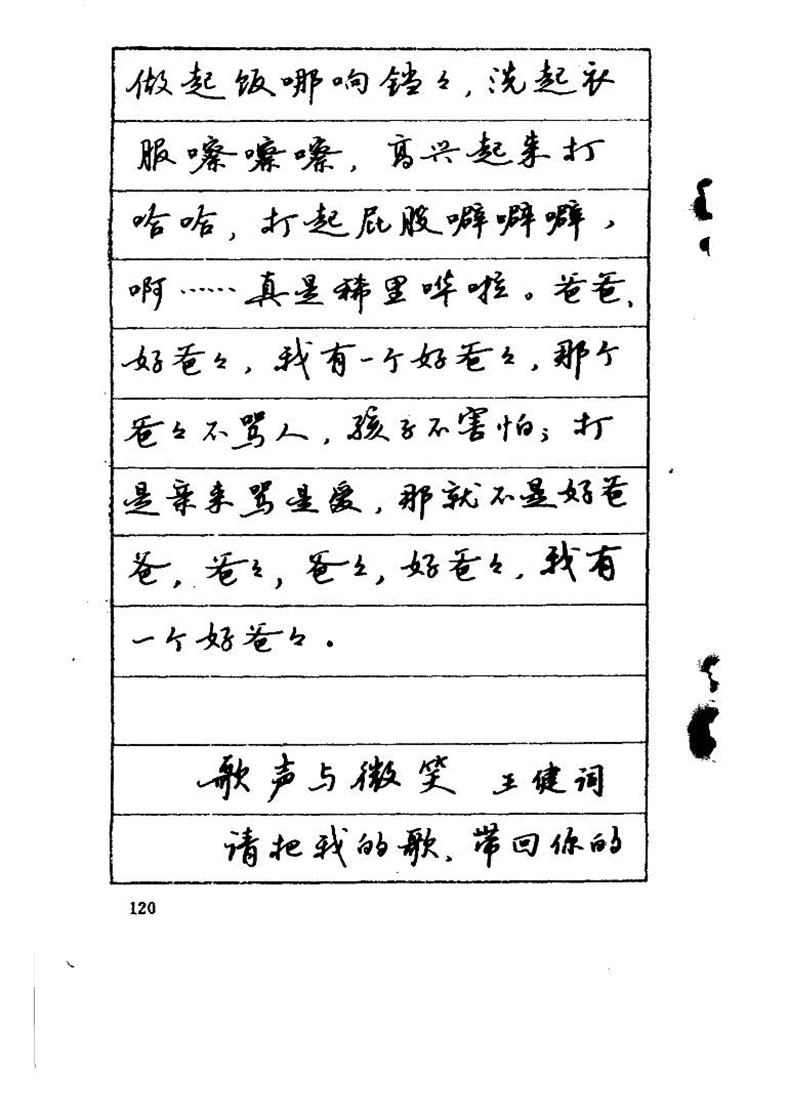 做起饭哪响铛々，洗起衣
服嚓嚓嚓，高兴起来打
哈哈，打起屁股噼噼噼，
啊……真是稀里哗啦。爸爸，
好爸々，我有一个好爸々，那个
爸々不骂人，孩子不害怕；打
是亲来骂是爱，那就不是好爸
爸，爸々，爸々，好爸々，我有
一个好爸々。
歌声与微笑 王健词
请把我的歌，带回你的
120